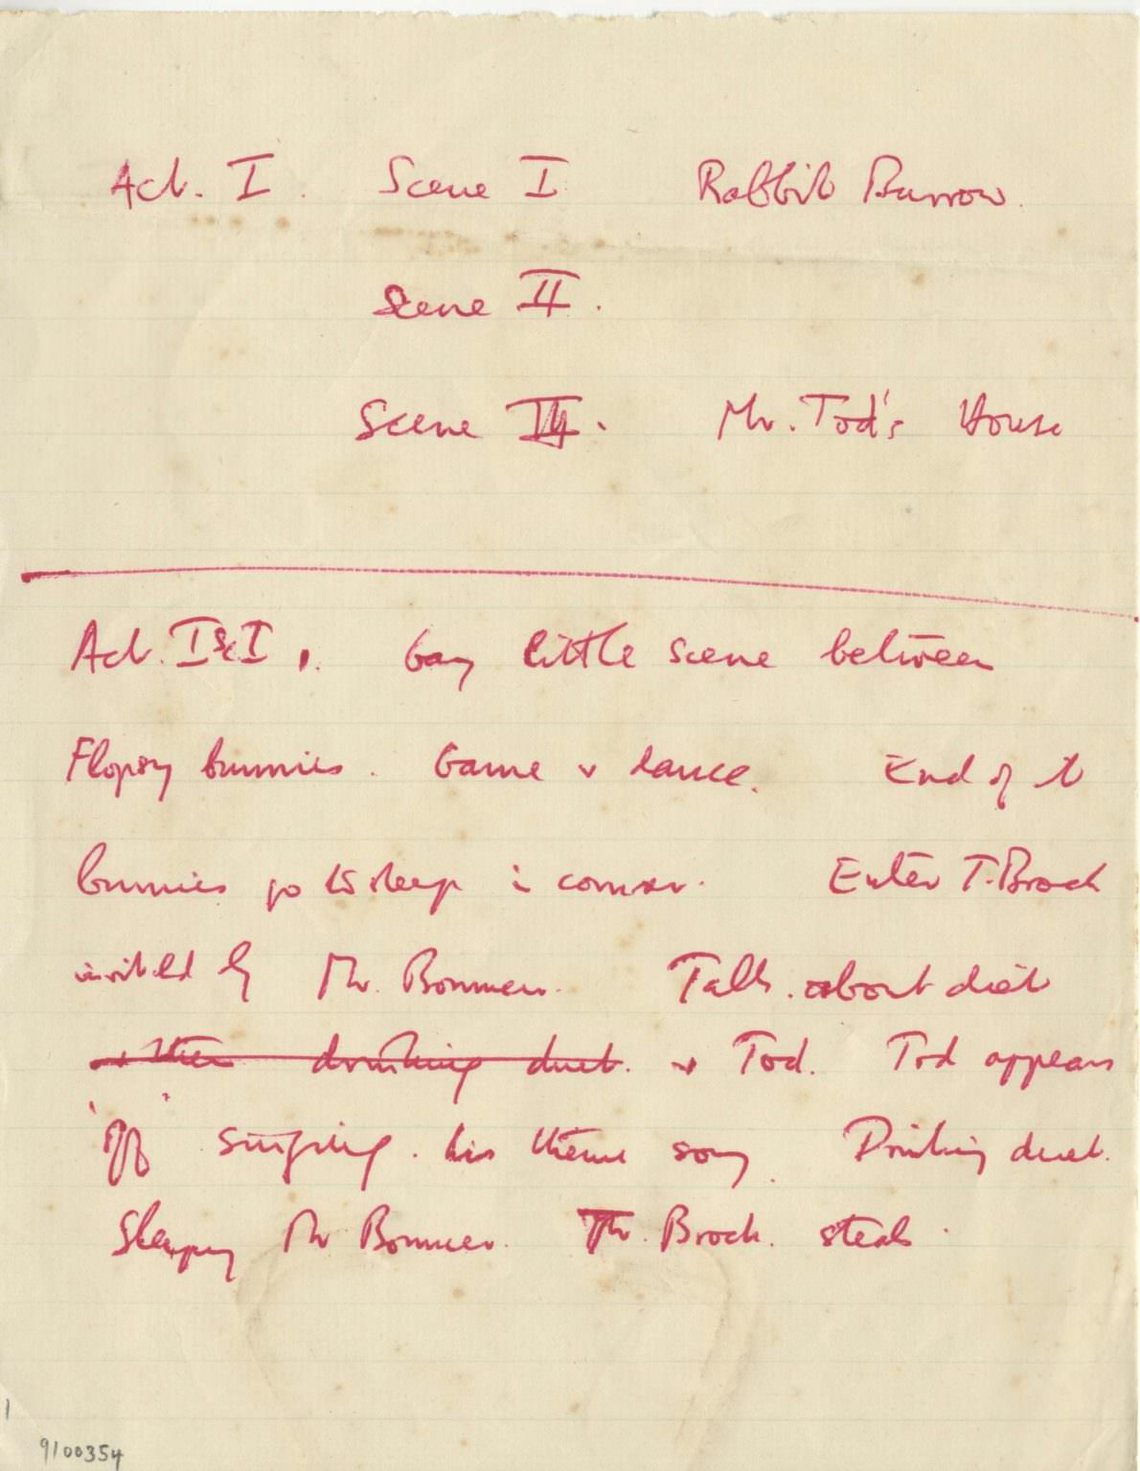 Act. I. Scene I Rabbit Burrow.
Scene II.
Scene III. Mr. Tod's House
Act. I Sc I. Gay little scene between
Flopsy bunnies. Game & dance. End of it
bunnies go to sleep in corner. Enter T. Brock
invited by Mr. Bouncer. Talk. about diet
& then drinking duet. & Tod. Tod appears
'off' singing. his theme song. Drinking duet.
Sleeping Mr Bouncer. Mr. Brock. steals.
9100354